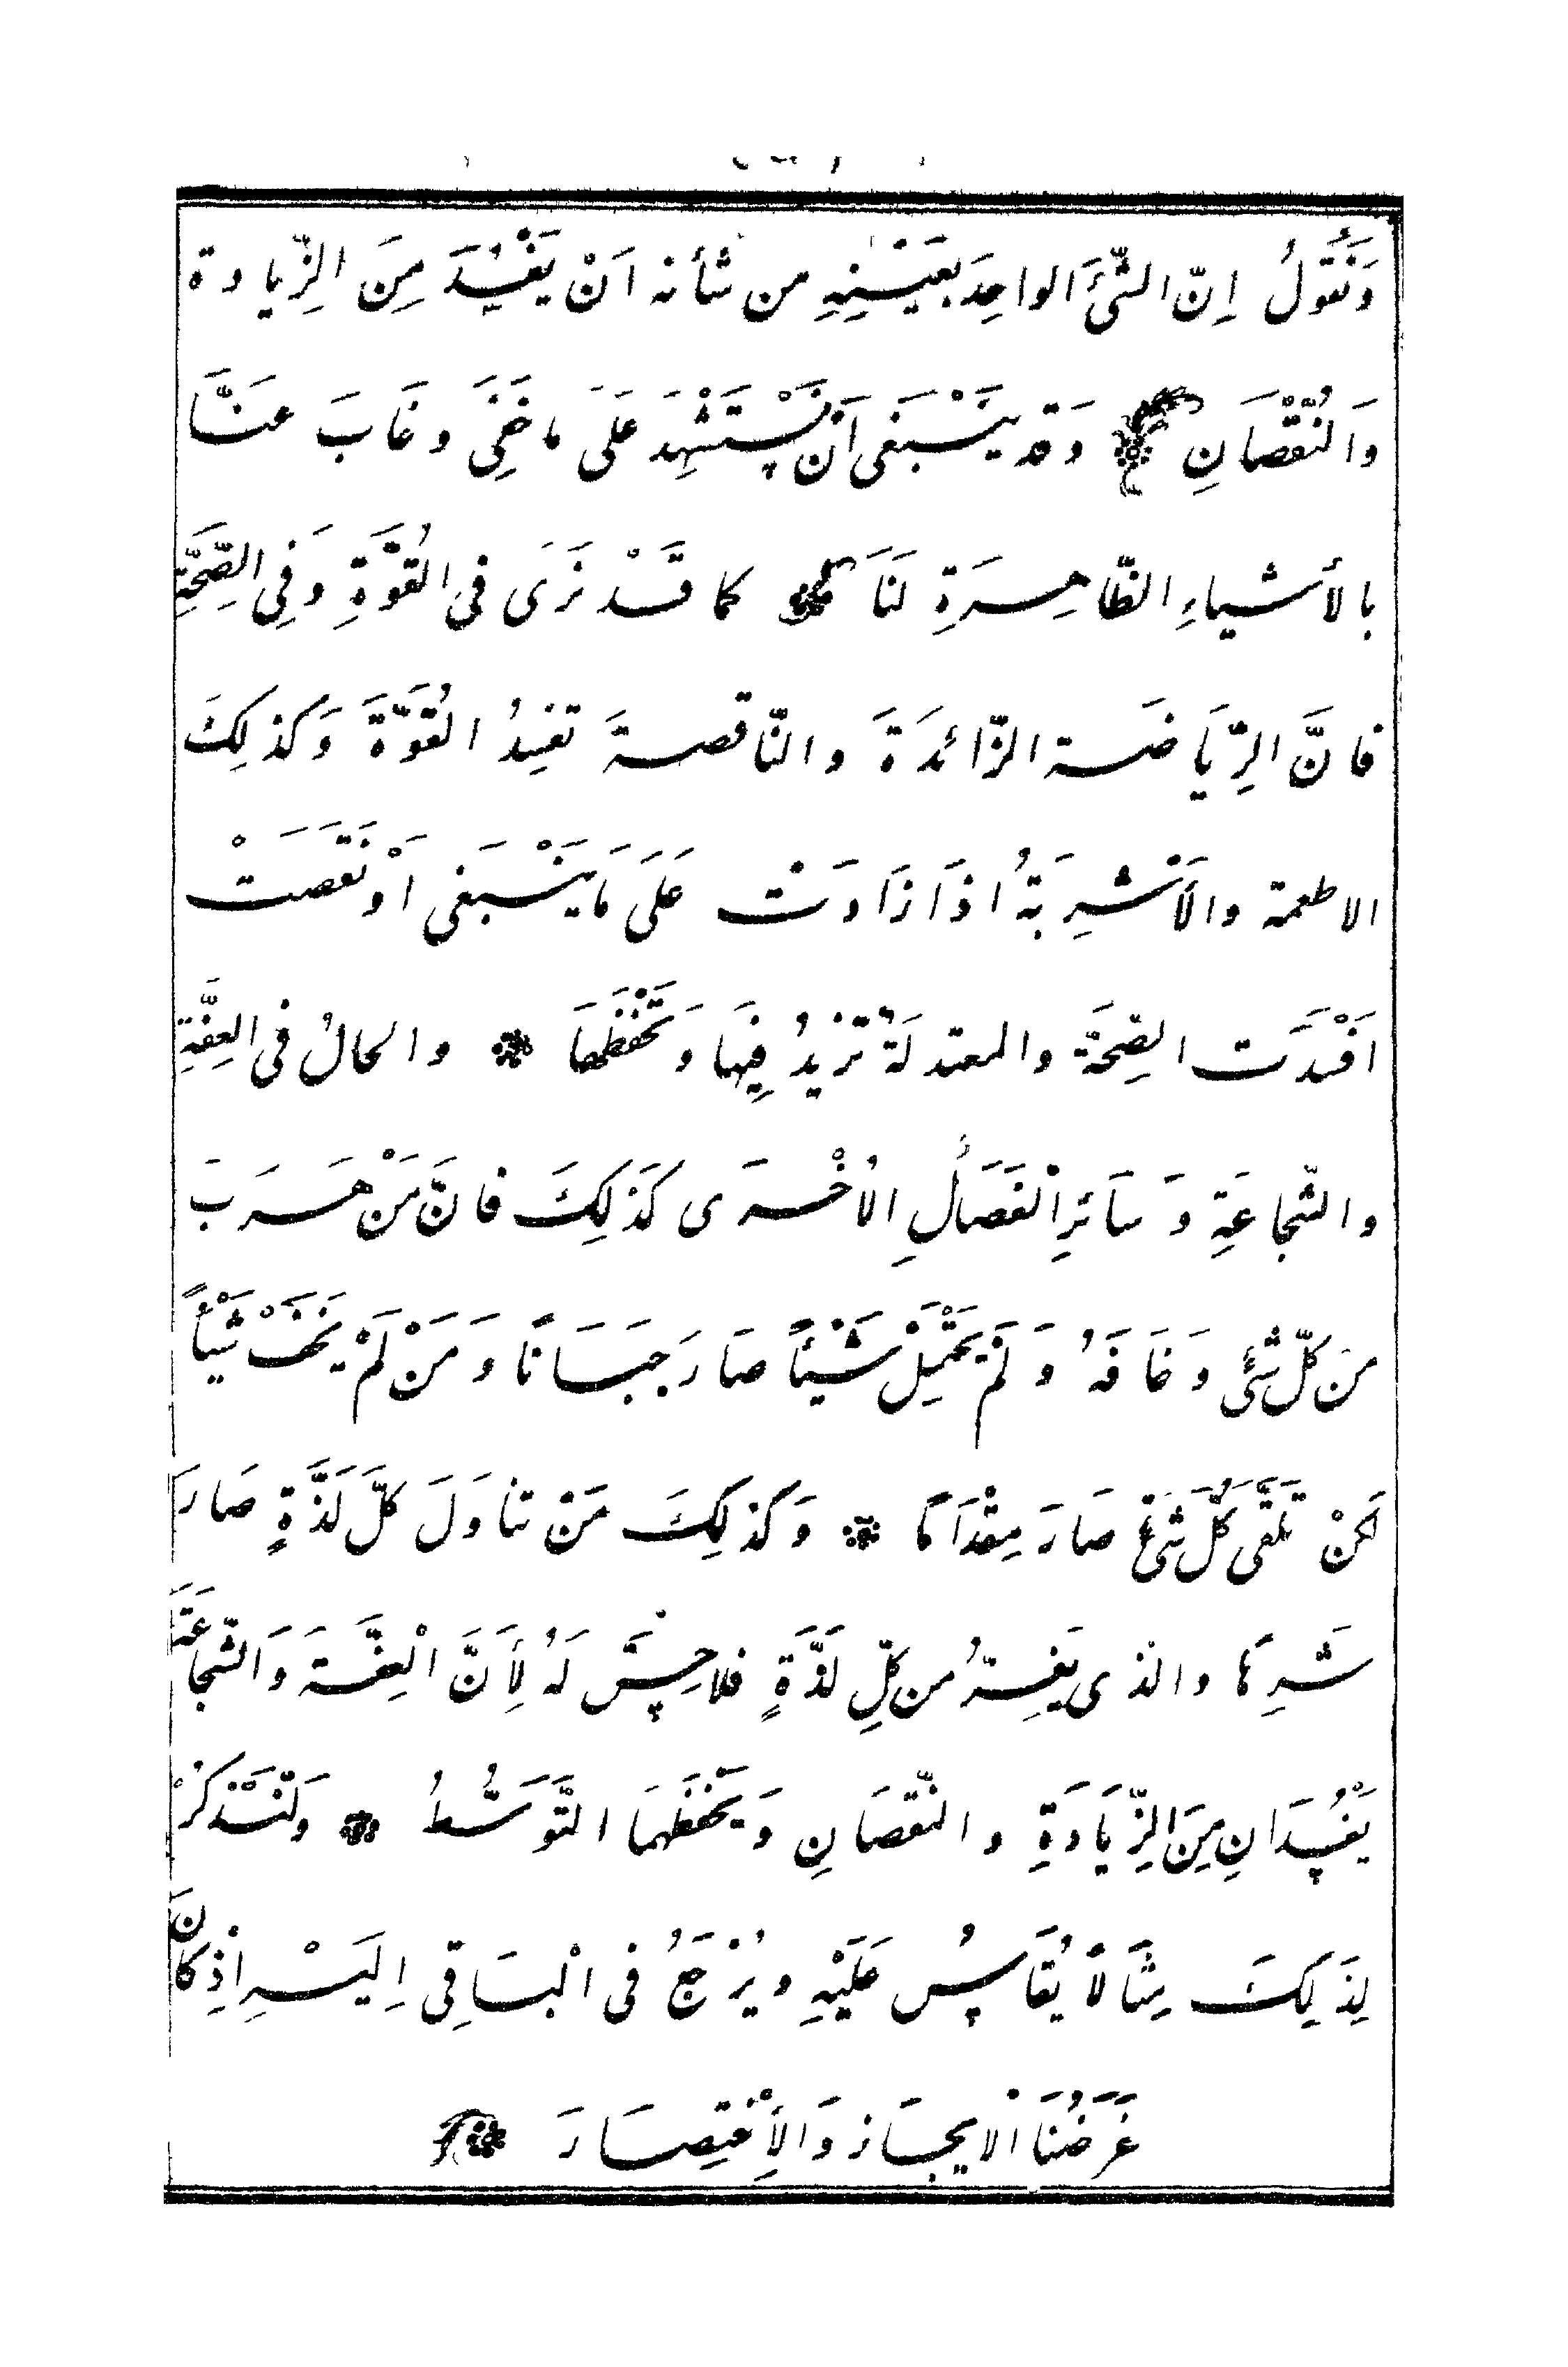 وَنَقُولُ اِنّ الشّئَ الواحِدَ بعَيْنِهِ من شأنه اَنْ يَفْسُدَ مِنَ الزِّيادة
وَالنُّقْصَانِ وَقد ينْبَغى اَنْ نَسْتَشْهِدَ عَلَى ماخَفِىَ وغَابَ عنَّا
بالأشياءِ الظّاهِرَةِ لنَا كما قَدْ نرَى فى القُوَّةِ وَفِى الصِّحَّةِ
فانَّ الرِّيَاضَة الزّائدَةَ والنّاقصةَ تفسِدُ القُوَّةَ وَكذلِكَ
الاطعمة والأَشْرِبَةُ اذَا زَادَتْ عَلَى مَاينْبَغى اَوْنَقَصَتْ
اَفْسَدَت الصِّحَّة والمعتدلَةُ تزيدُ فِيهَا وَتَحْفَظُهَا والحالُ فى العِفَّةِ
والشّجاعَةِ وَسَائرِ الْفَضَائلِ الاُخْرَى كَذَلِكَ فانَّ مَنْ هَرَبَ
مِنَ كلّ شئٍ وَخَافَهُ وَلَمْ يَحْتَمِلْ شَيْئاً صَارَ جَبَانًا وَمَنْ لَمْ يَخَفْ شَيْئاً
لكنْ تَلَقَّى كُلَّ شَئٍ صَارَ مِقْدَامًا وَكذلِكَ مَنْ تناوَلَ كلَّ لَذَّةٍ صَارَ
شَرِهًا والذى يَفِرُّ من كلِّ لَذَّةٍ فلا حِسَّ لَهُ لِأَنَّ الْعِفَّةَ وَالشّجَاعَةَ
يَفْسُدَانِ مِنَ الزِّيَادَةِ والنّقصَانِ وَيَحْفَظُهَمَا التَّوَسُّطُ وَلْنَذْكُرْ
لِذَلِكَ مِثَالًا يُقَاسُ عَلَيْهِ ويُرْجَعُ فى الْبَاقِى اِلَيْهِ اِذْ كانَ
غَرَضُنَا الْايجَازَ وَالِاْخْتِصَارَ